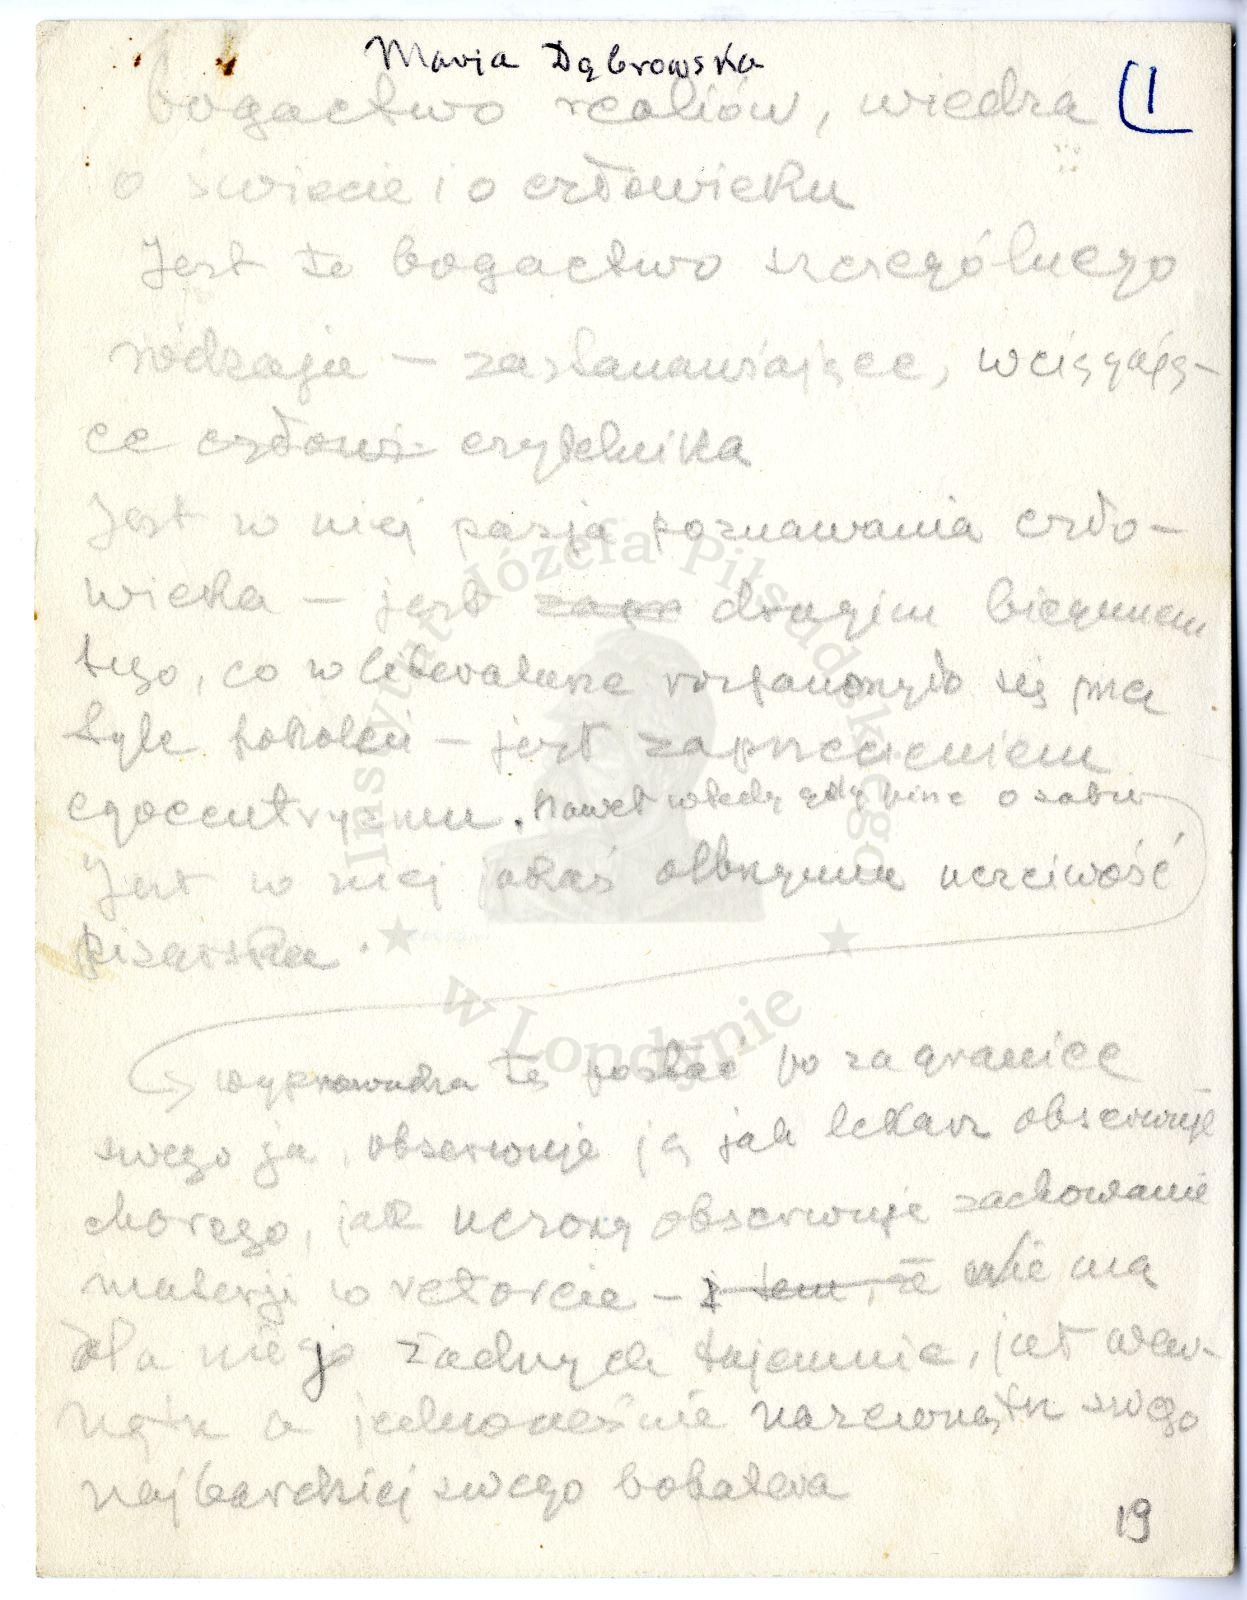 Maria Dąbrowska
bogactwo realiów, wiedza
1
o świecie i o człowieku
Jest to bogactwo szczególnego
rodzaju – zastanawiające, wciągają-
ce człowi- czytelnika
Jest w niej pasja poznawania czło-
wieka – jest zapr drugim biegunem
tego, co w literaturze rozpanoszyło się na
tyle pokoleń – jest zaprzeczeniem
egocentryzmu. Nawet wtedy gdy pisze o sobie
Jest w niej jakaś olbrzymia uczciwość
pisarska.
wyprowadza tę postać poza granice
swego ja, obserwuje ją jak lekarz obserwuje
chorego, jak uczony obserwuje zachowanie
materji w retorcie – i tem, że nie ma
dla niego żadnych tajemnic, jest wew-
nątrz a jednocześnie nazewnątrz swego
najbardziej swego bohatera
19
Instytut Józefa Piłsudskiego
w Londynie